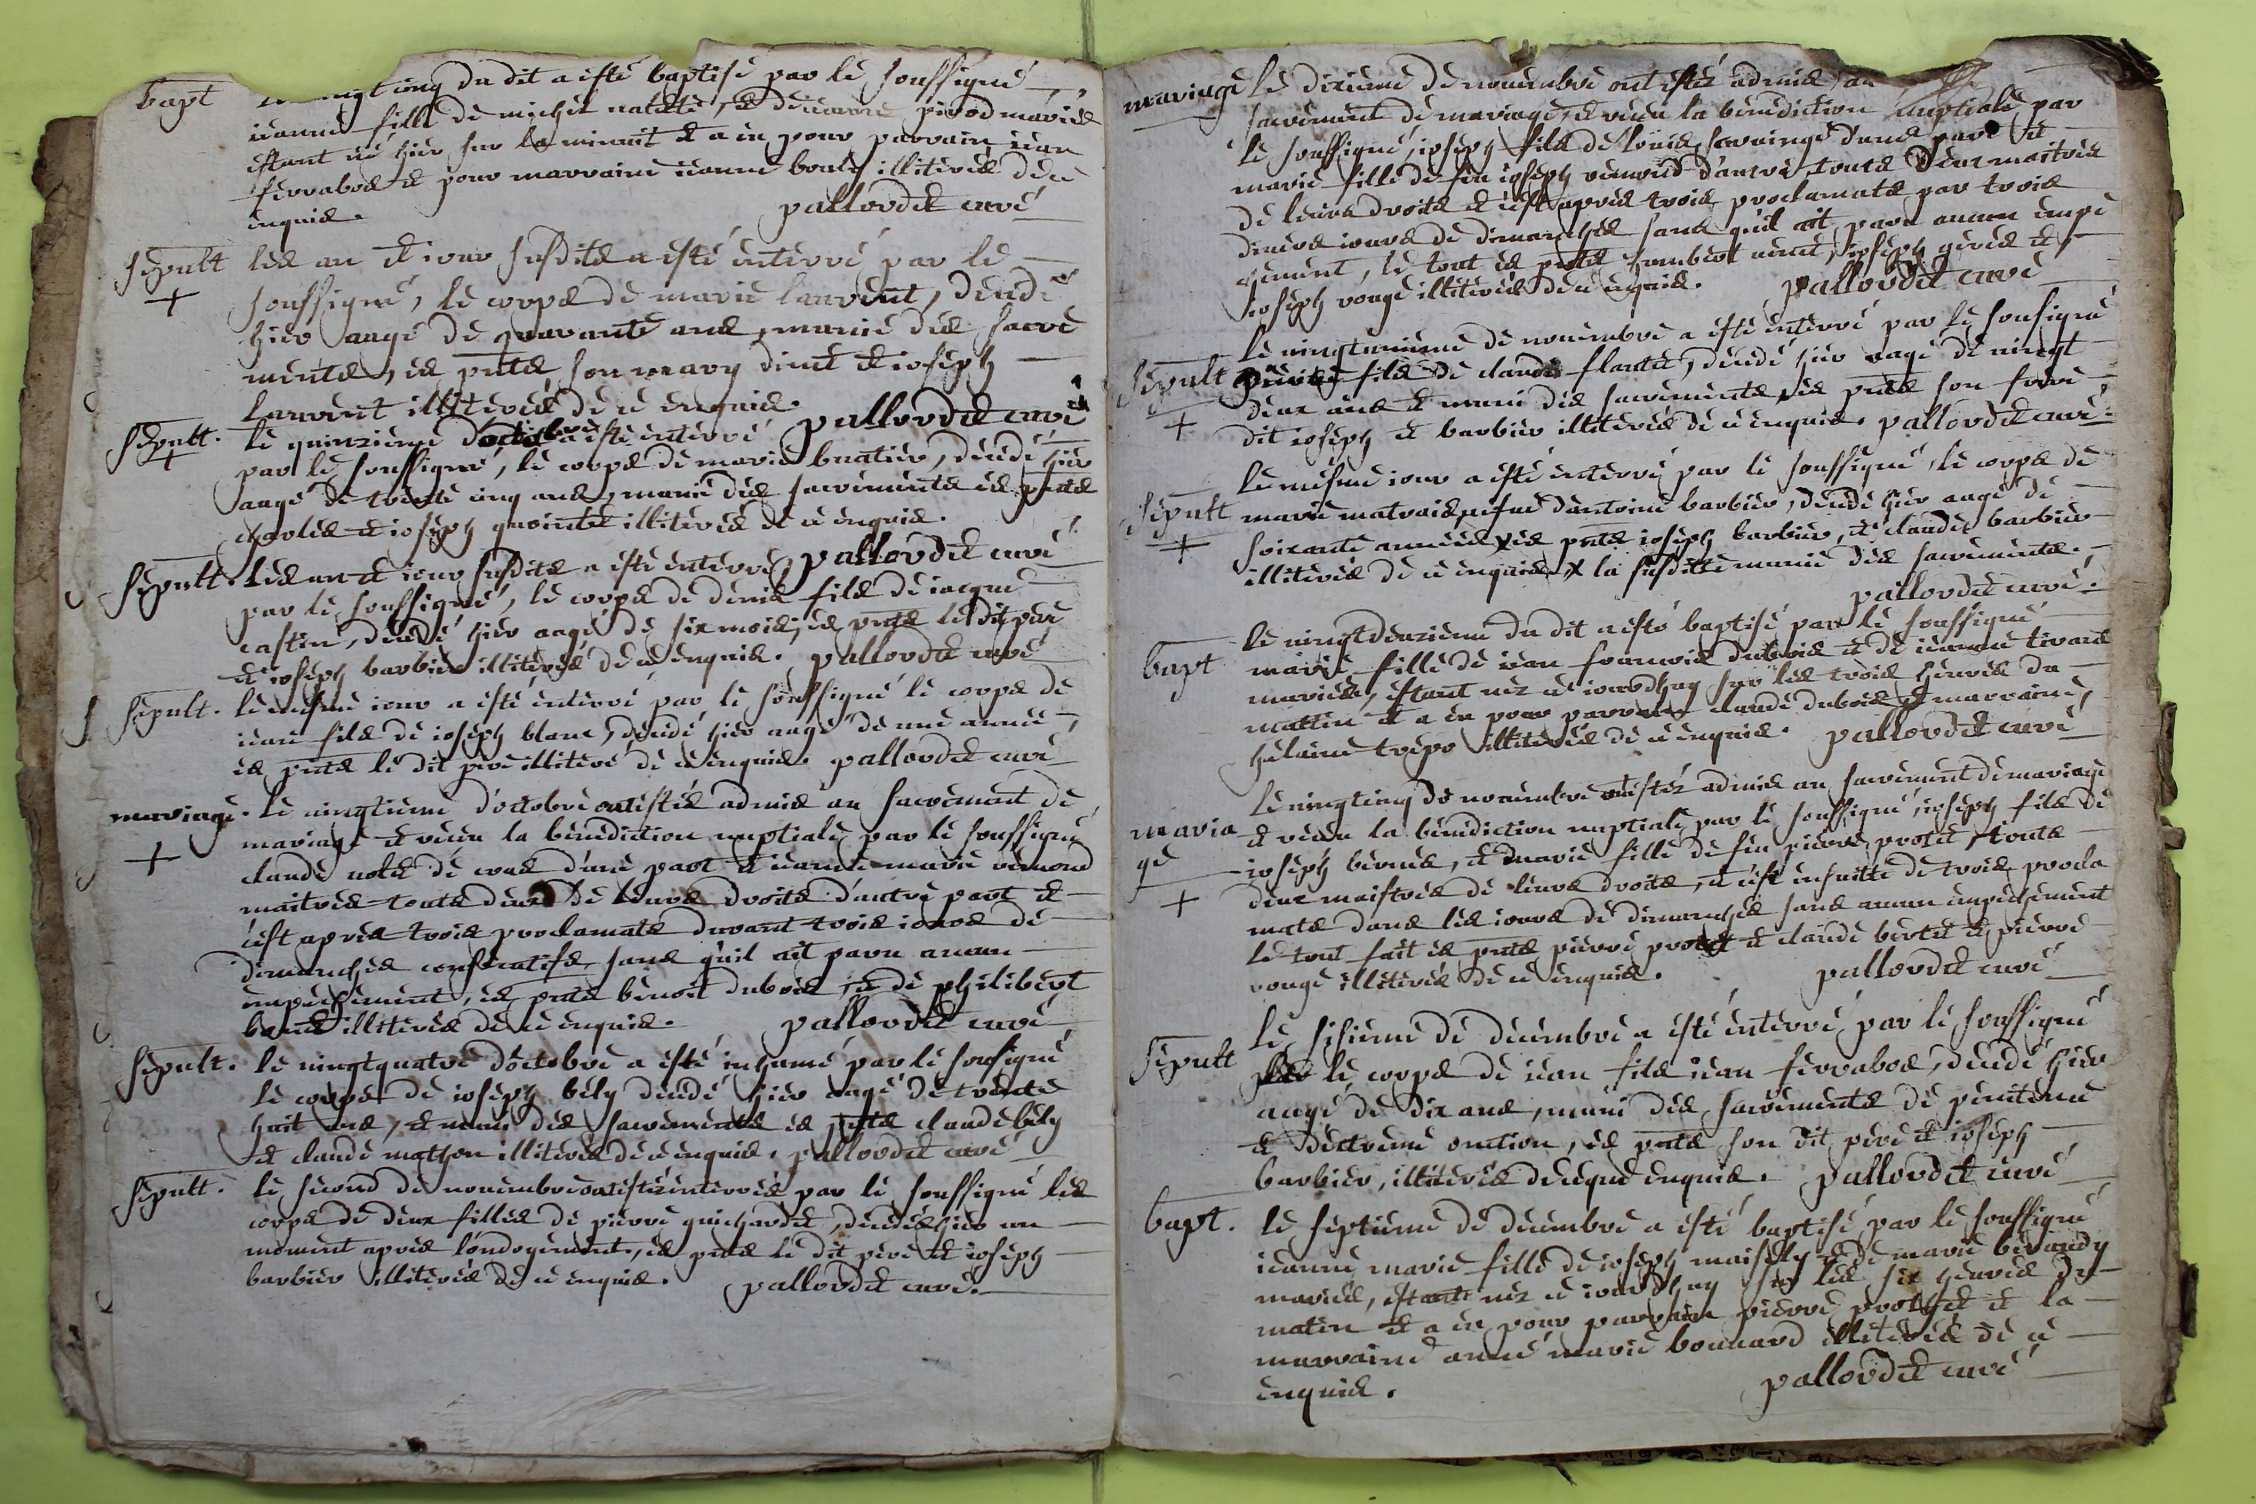 bapt
vingtcinq du dit a esté baptisé par le soussigné
ieanne fille de michel natete, et de ieanne pirod mariés
estant né hier sur la minuit et a eu pour parrain iean
ferrabos et pour marraine ieanne bouly illiterés de ce
enquis.
pallordet curé
sepult
les an et iour susdits a esté enterré par le
soussigné, le corps de marie laurent, decedé
hier aagé de quarante ans, munie des sacre
ments, es pnts son mary dint et ioseph
laurent illiterés de ce enquis.
pallordet curé
sepult.
le quinzieme d'octobre a esté enterré
par le soussigné, le corps de marie buatier, decedé hier
aagé de trente cinq ans, munie des sacrements es pnts
charles et ioseph guointet illiterés de ce enquis.
pallordet curé
sepult.
les an et iour susdits a esté enterré
par le soussigné, le corps de denis fils de iacque
castin, decedé hier aagé de six mois, es pnts le dit pere
et ioseph barbier illiterés de ce enquis. pallordet curé
sepult.
le mesme iour a esté enterré par le soussigné le corps de
iean fils de ioseph blanc, decedé hier aagé de une année,
es pnts le dit pere illiteré de ce enquis. pallordet curé
mariage.
le vingtieme d'octobre ont estés admis au sacrement de
mariage et receu la benediction nuptiale par le soussigné
claude nolet de cras d'une part et ieanne marie remond
maitres touts deux de leurs droits d'autre part et
c'est apres trois proclamats durant trois iours de
dimanches consecutifs sans qu'il ait paru aucun
empechement, es pnts benoit dubois, et de philibert
illiterés de ce enquis. pallordet curé
sepult.
le vingtquatre d'octobre a esté inhumé par le sousigné
le corps de ioseph bely decedé hier aagé de trente
huit ans, et muni des sacrements es pnts claude bely
et claude mathon illiterés de ce enquis. pallordet curé
sepult.
le second de novembre ont estés enterrés par le soussigné les
corps de deux filles de pierre guichardet, decedés hier un
moment apres l'ondoyement, es pnts le dit pere et ioseph
barbier illiterés de ce enquis. pallordet curé.
mariage
le dixieme de novembre ont estéz admis au
sacrement de mariage, et receu la benediction nuptiale par
le soussigné, ioseph fils de louis d'une part et
marie fille de feu ioseph remond d'autre touts deux maitres
de leurs droits et c'est apres trois proclamats par trois
divers iours de dimanches sans qu'il ait paru aucun empe
chement, le tout es pnts ioseph et
ioseph rouge illiterés de ce enquis. pallordet curé
sepult
le vingtunieme de novembre a esté enterré par le sousigné
fils de claude flantet, decedé hier aagé de vingt
deux ans et muni des sacrements, es pnts son frere
dit ioseph et barbier illiterés de ce enquis. pallordet curé.
sepult
le mesme iour a esté enterré par le soussigné, le corps de
marie d'antoine barbier, decedé hier aagé de
soixante années, es pnts ioseph barbier, et claude barbier
illiterés de ce enquis, x la susditte munie des sacrements.
pallordet curé.
bapt
le vingtdeuzieme du dit a esté baptisé par le soussigné
marie fille de iean francois dubois et de ieanne tirand
mariés, estant néz ce iourdhuy sur les trois heures du
mattin et a eu pour parrain claude dubois et marraine,
helaine trepo illiterés de ce enquis. pallordet curé
maria
ge
le vingtcinq de novembre ont estéz admis au sacrement de mariage
et receu la benediction nuptiale par le soussigné, ioseph fils de
ioseph et marie fille de feu pierre protet, touts
deux maistres de leurs droits, et c'est ensuitte de trois procla
mats dans les iours de dimanches sans aucun empechement
le tout fait es pnts pierre protet et claude bertet et pierre
rouge illiterés de ce enquis. pallordet curé
sepult
le sisieme de decembre a esté enterré par le soussigné
le corps de iean fils iean ferrabos, decedé hier
aagé de dix ans, muni des sacrements de penitence
et d'extreme onction, es pnts son dit pere et ioseph
barbier, illiterés de ce que enquis. pallordet curé
bapt.
le septieme de decembre a esté baptisé par le soussigné
ieanne marie fille de ioseph et de marie beraudy
mariés, estant néz ce iourdhuy sur les six heures du
matin et a eu pour parrain pierre prothet et la
marraine anne marie bouuard illiterés de ce
enquis.
pallordet curé